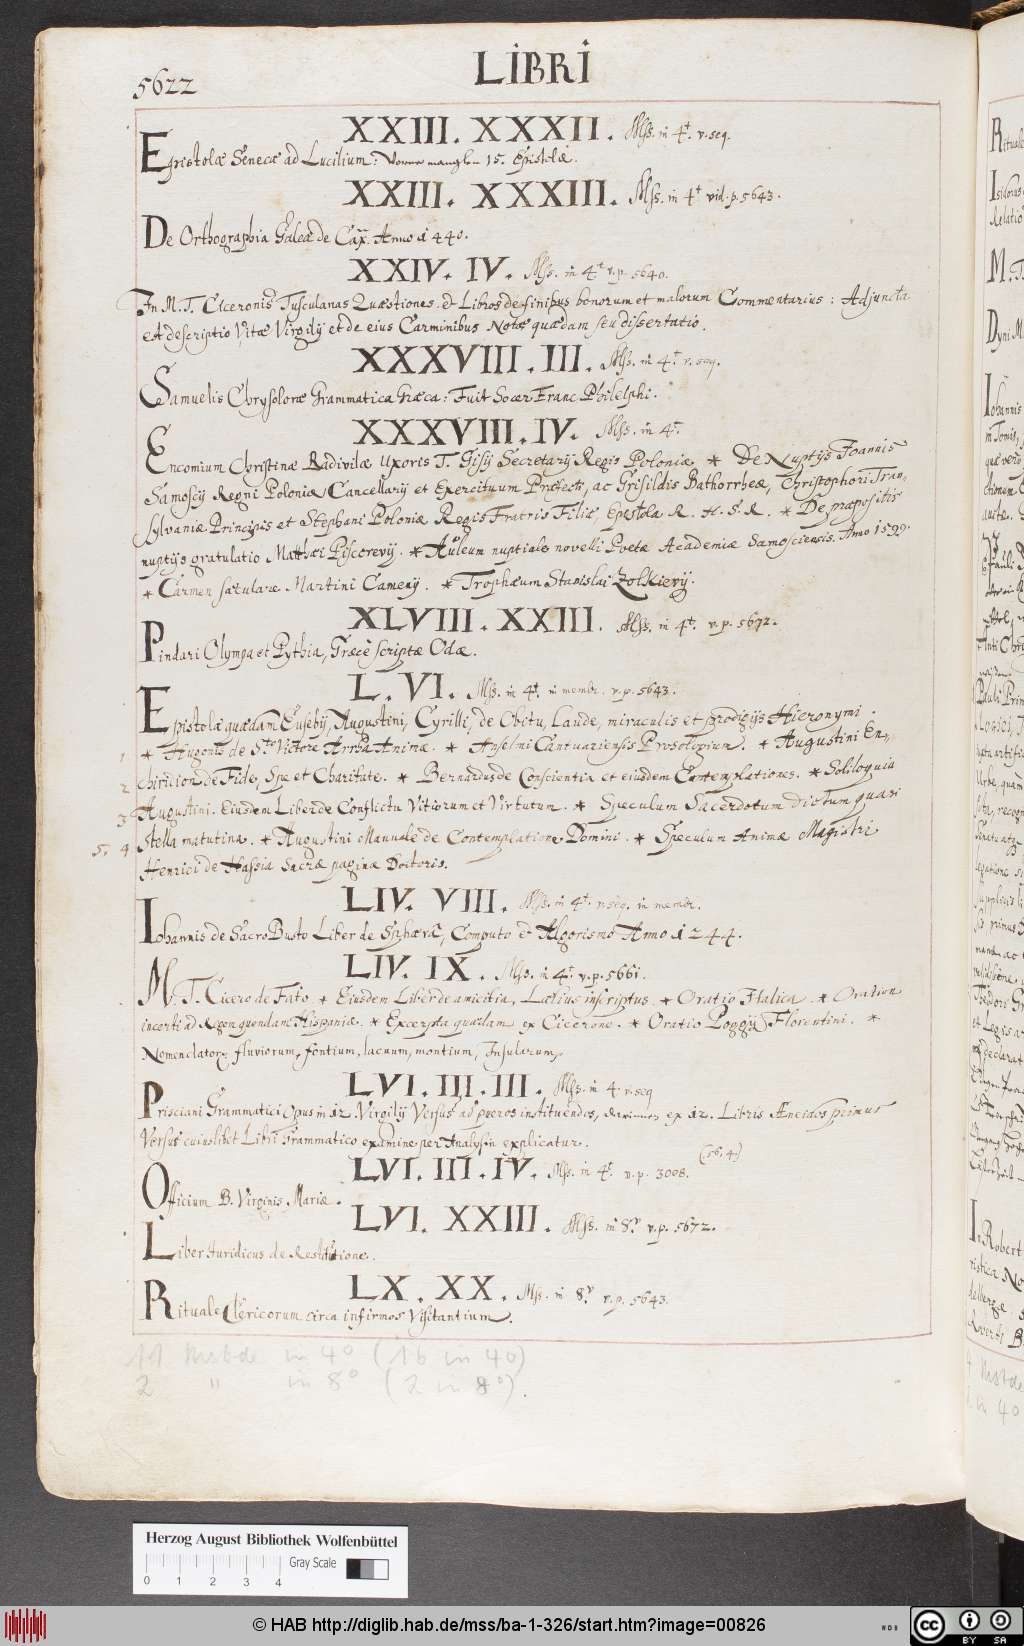 5622
LIBRI
XXIII. XXXII. Mss. in 4t. v. seq.
Epistolæ Senecæ ad Lucilium: Vorne manglen 15. Epistolæ.
XXIII. XXXIII. Mss. in 4t vid. p. 5643.
De Orthographia Galeæ de Cax. Anno 1440.
XXIV. IV. Mss. in 4t v. p. 5640.
In M. T. Ciceronis Tusculanas Quæstiones & Libros de finibus bonorum et malorum Commentarius: Adjuncta
et descriptio Vitæ Virgilij et de eius Carminibus Notæ quædam seu dissertatio.
XXXVIII. III. Mss. in 4t. v. seq.
Samuelis Chrysoloræ Grammatica Græca: Fuit Socer Franc. Philelphi.
XXXVIII. IV. Mss. in 4t.
Encomium Christinæ Radivilæ Uxoris T. Gisij Secretarij Regis Poloniæ * De Nuptijs Joannis
Samoscij Regni Poloniæ Cancellarij et Exercituum Præfecti, ac Grisildis Bathorrheæ, Christophori Tran-
sylvaniæ Principis et Stephani Poloniæ Regis Fratris Filiæ, Epistola R. H. S. R. * De præpositis
nuptijs gratulatio Matthæi Piscorevij. * Auleum nuptiale novelli Poetæ Academiæ Samosciensis. Anno 1599.
* Carmen sæculare Martini Camenij. * Trophæum Stanislai Zolkievij.
XLVIII. XXIII. Mss. in 4t. v. p. 5672.
Pindari Olympa et Pythia, Græce scriptæ Odæ.
L. VI. Mss. in 4t. in membr. v. p. 5643.
Epistolæ quædam Eusebij, Augustini, Cyrilli, de Obitu, Laude, miraculis et prodigijs Hieronymi.
1 * Hugonis de Sto Victore Arrha Animæ. * Anselmi Cantuariensis Prosolopium. * Augustini En-
2 chiridion de Fide, Spe et Charitate. * Bernardus de Conscientia et eiusdem Contemplationes. * Soliloquia
3 Augustini. Eiusdem Liber de Conflictu Vitiorum et Virtutum. * Speculum Sacerdotum dictum quasi
5. 4 Stella matutina. * Augustini Manuale de Contemplatione Domini. * Speculum Animæ Magistri
Henrici de Hassia Sacræ paginæ Doctoris.
LIV. VIII. Mss. in 4t. v. seq. in membr.
Iohannis de Sacro Busto Liber de Sphæra, Computo & Algorismo Anno 1244.
LIV. IX. Mss. in 4t. v. p. 5661.
M. T. Cicero de Fato * Eiusdem Liber de amicitia, Lælius inscriptus. * Oratio Italica. * Oration
incerti ad Regem quendam Hispaniæ. * Excerpta quædam ex Cicerone. * Oratio Poggij Florentini. *
Nomenclator fluviorum, fontium, lacuum, montium, Insularum,
LVI. III. III. Mss. in 4 v. seq
Prisciani Grammatici Opus in 12. Virgilij Versus ad pueros instituendos, ex 12. Libris Æneidos primus
Versus cuiuslibet Libri Grammatico examine per Analysin explicatur.
LVI. III. IV. Mss. in 4t. v. p. 3008. (56, 4)
Officium B. Virginis Mariæ.
LVI. XXIII. Mss. in 8v v. p. 5672.
Liber Iuridicus de Restitutione.
LX. XX. Mss. in 8v v. p. 5643.
Rituale Clericorum circa infirmos Visitantium.
in 4° (16 in 4°)
2 " in 8° (2 in 8°).
Herzog August Bibliothek Wolfenbüttel
0 1 2 3 4 Gray Scale
© HAB http://diglib.hab.de/mss/ba-1-326/start.htm?image=00826
cc BY SA